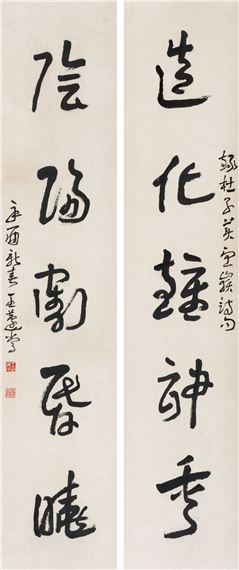 録杜子美望嶽詩句
造化鍾神秀
陰陽割昏曉
辛酉新春王蘧常